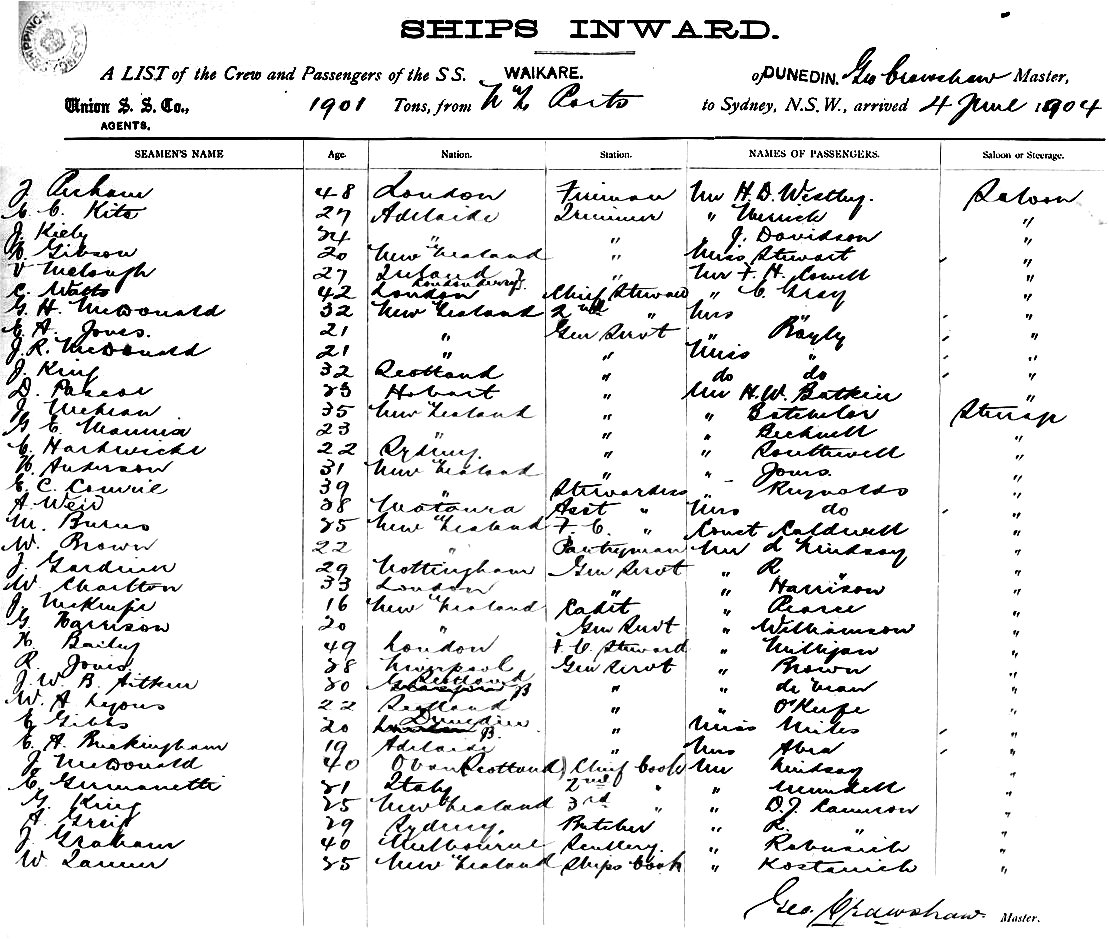 SHIPS INWARD.
A LIST of the Crew and Passengers of the S.S. WAIKARE. of DUNEDIN. Geo Crawshaw Master,
Union S. S. Co., 1901 Tons, from N Z Ports to Sydney, N.S.W., arrived 4 June 1904
AGENTS.
SEAMEN'S NAME Age. Nation. Station. NAMES OF PASSENGERS. Saloon or Steerage.
J 48 London Fireman Mr H. D. Westby. Saloon
C. C. Kito 27 Adelaide Trimmer " "
J. Kiely 24 " " J. Davidson "
Gibson 20 New Zealand " Miss Stewart "
V 27 Ireland Londonderry " Mr F. H. Cowell "
C. Watts 42 London Chief Steward " C. Gray "
G. H. McDonald 32 New Zealand 2nd " Mrs "
E. A. Jones. 21 " Gen Servt Bayly "
J. R. McDonald 21 " " Miss " "
J. King 32 Scotland " do do "
D. Pascoe 23 Hobart " Mr H. W. Batkin "
J 35 New Zealand " " Batchelor Steerage
G. E. 23 " " " Bicknell "
C. Hardwicke 22 Sydney. " " Southwell "
Anderson 31 New Zealand " " Jones. "
E. C. Comrie 39 " Stewardess " Reynolds "
A Weir 38 Mataura Asst " Mrs do "
M. Burns 35 New Zealand F. C. " Const Caldwell "
W. Brown 22 " Pantryman Mr L Lindsay "
J. Gardiner 29 Nottingham Gen Servt " R " "
W. Charlton 33 London " " Harrison "
J. McKenzie 16 New Zealand Cadet " Pearce "
G. Harrison 20 " Gen Servt " Williamson "
H. Bailey 49 London F. C. Steward " Milligan "
R. Jones. 38 Liverpool Gen Servt " Brown "
J. W. B. Aitken 30 Scotland " " "
W. A. Lyons 22 Scotland " " O'Keefe "
E Gibbs 20 Dunedin " Miss Miles "
E. A. Buckingham 19 Adelaide " Mrs "
J. McDonald 40 Oban Scotland) Chief Cook Mr Lindsay "
C. 31 Italy 2nd " " "
G. King 25 New Zealand 3rd " " D. J. Cameron "
A. Greig 29 Sydney. Butcher " R. " "
J. Graham 40 Melbourne Scullery. " "
W. 25 New Zealand Ships Cook " Kostanich "
Geo. Crawshaw Master.